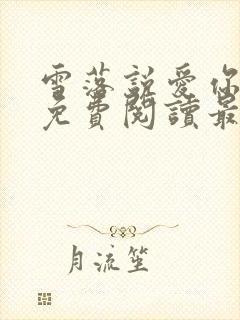 雪落說愛你
免費閱讀最
月流笙